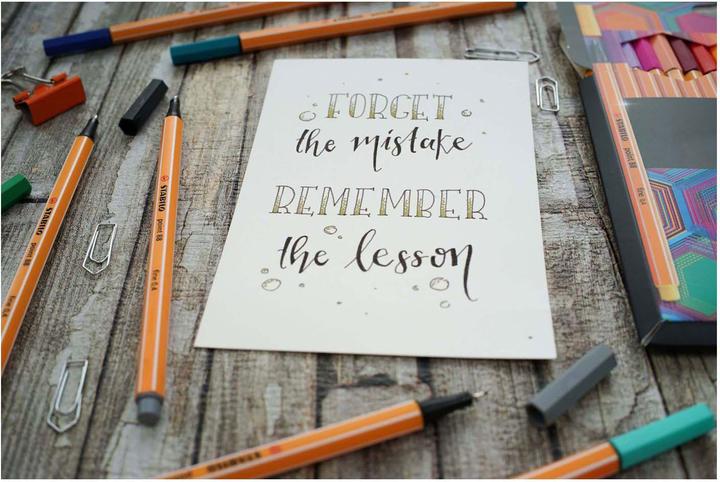 FORGET
the mistake
REMEMBER
the lesson
STABILO point 88 fine 0.4
STABILO point 88 fine 0.4
STABILO point 88 fine 0.4
STABILO